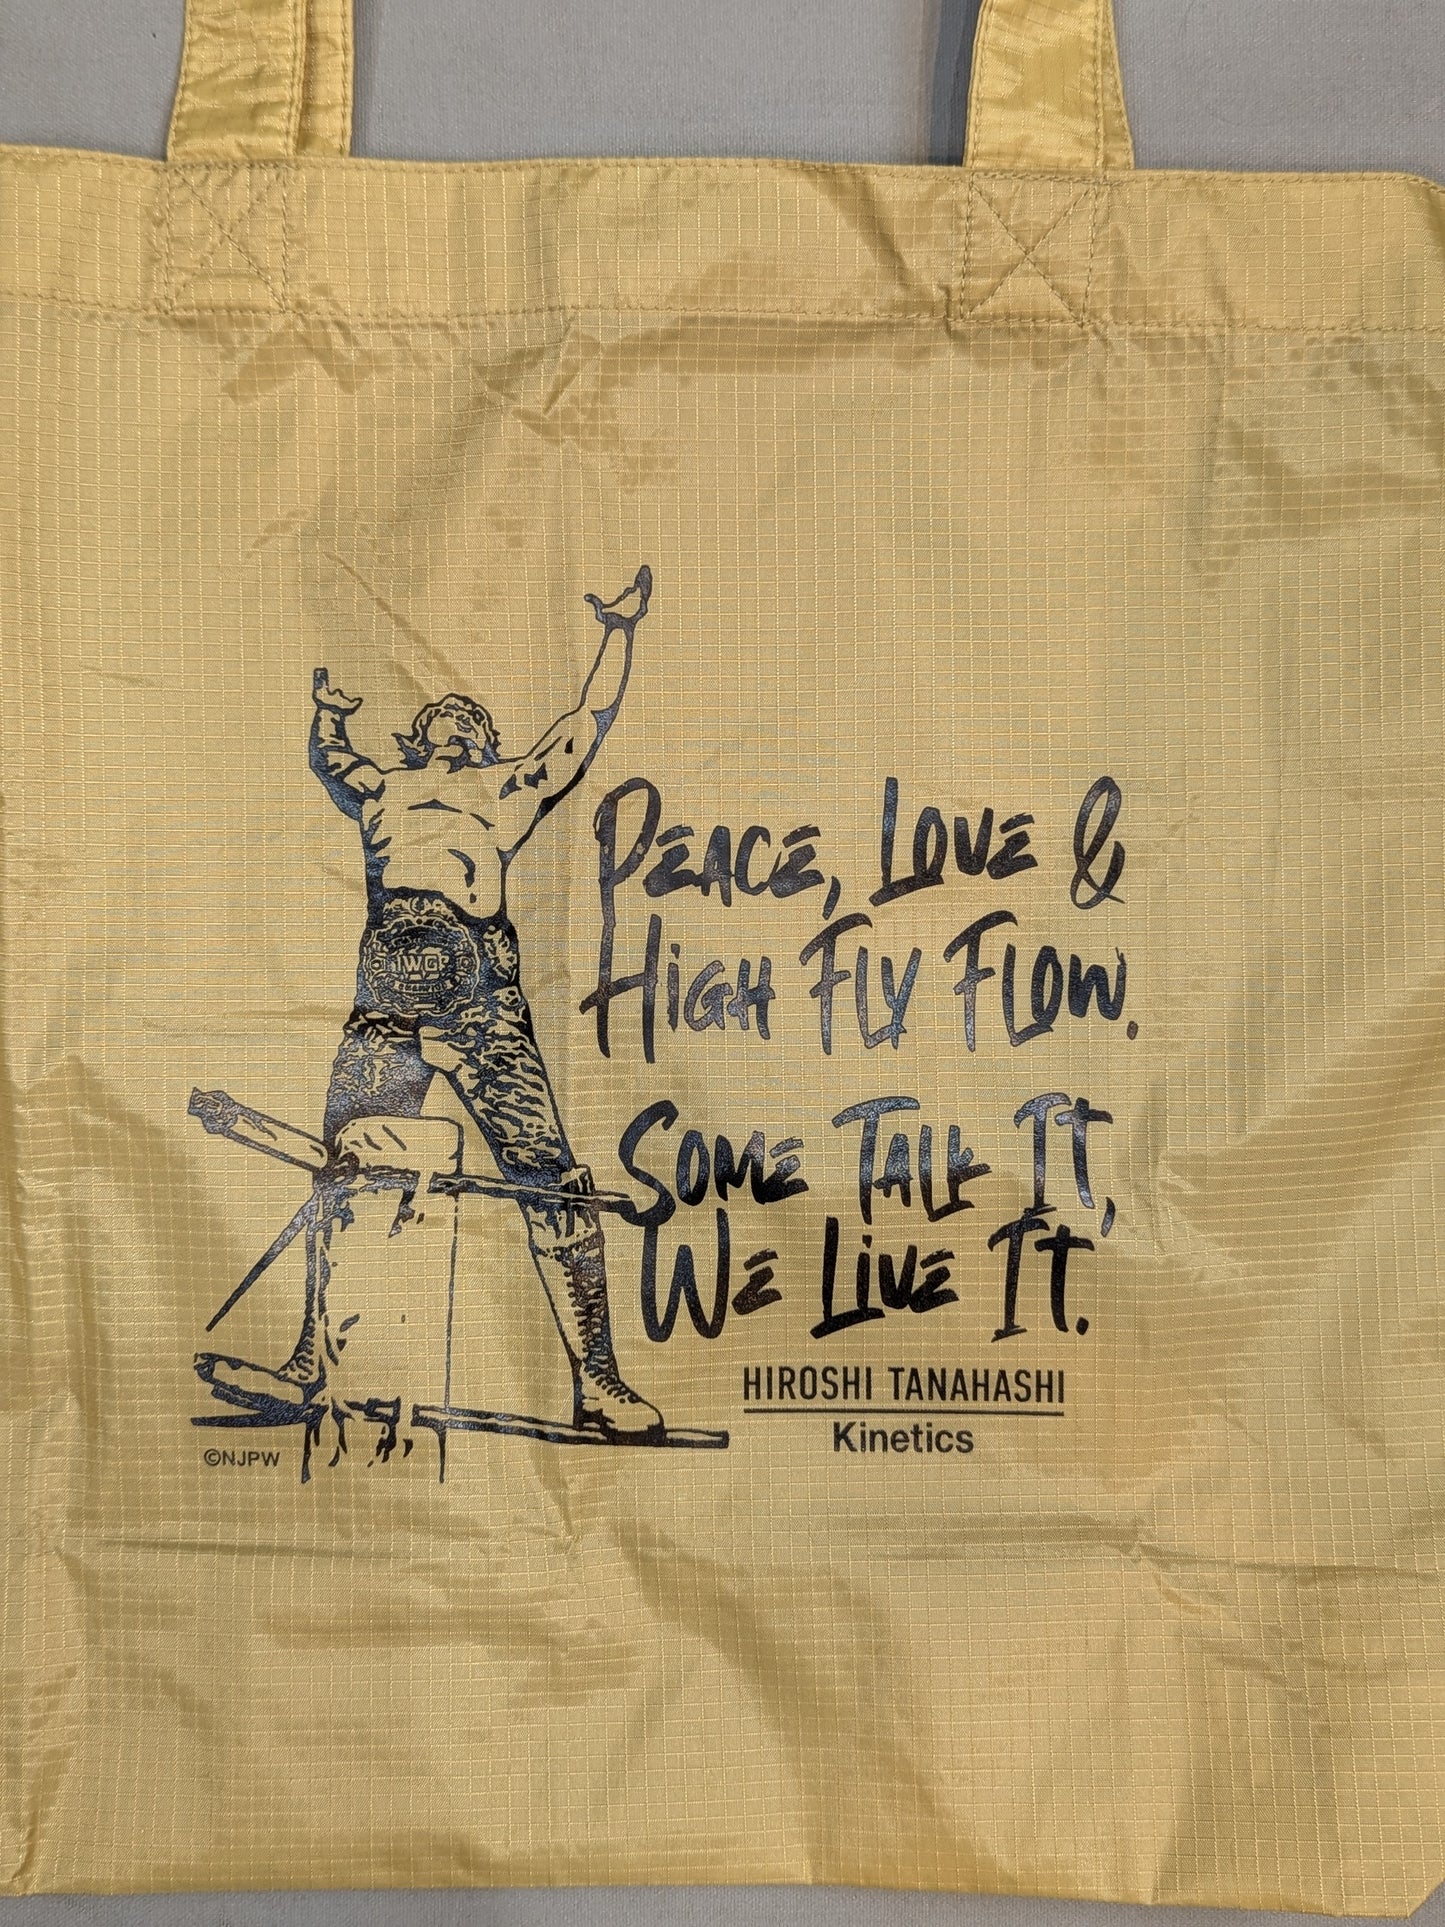 PEACE, LOVE &
HIGH FLY FLOW.
SOME TALK IT,
WE LIVE IT.
HIROSHI TANAHASHI
Kinetics
©NJPW
IWGP